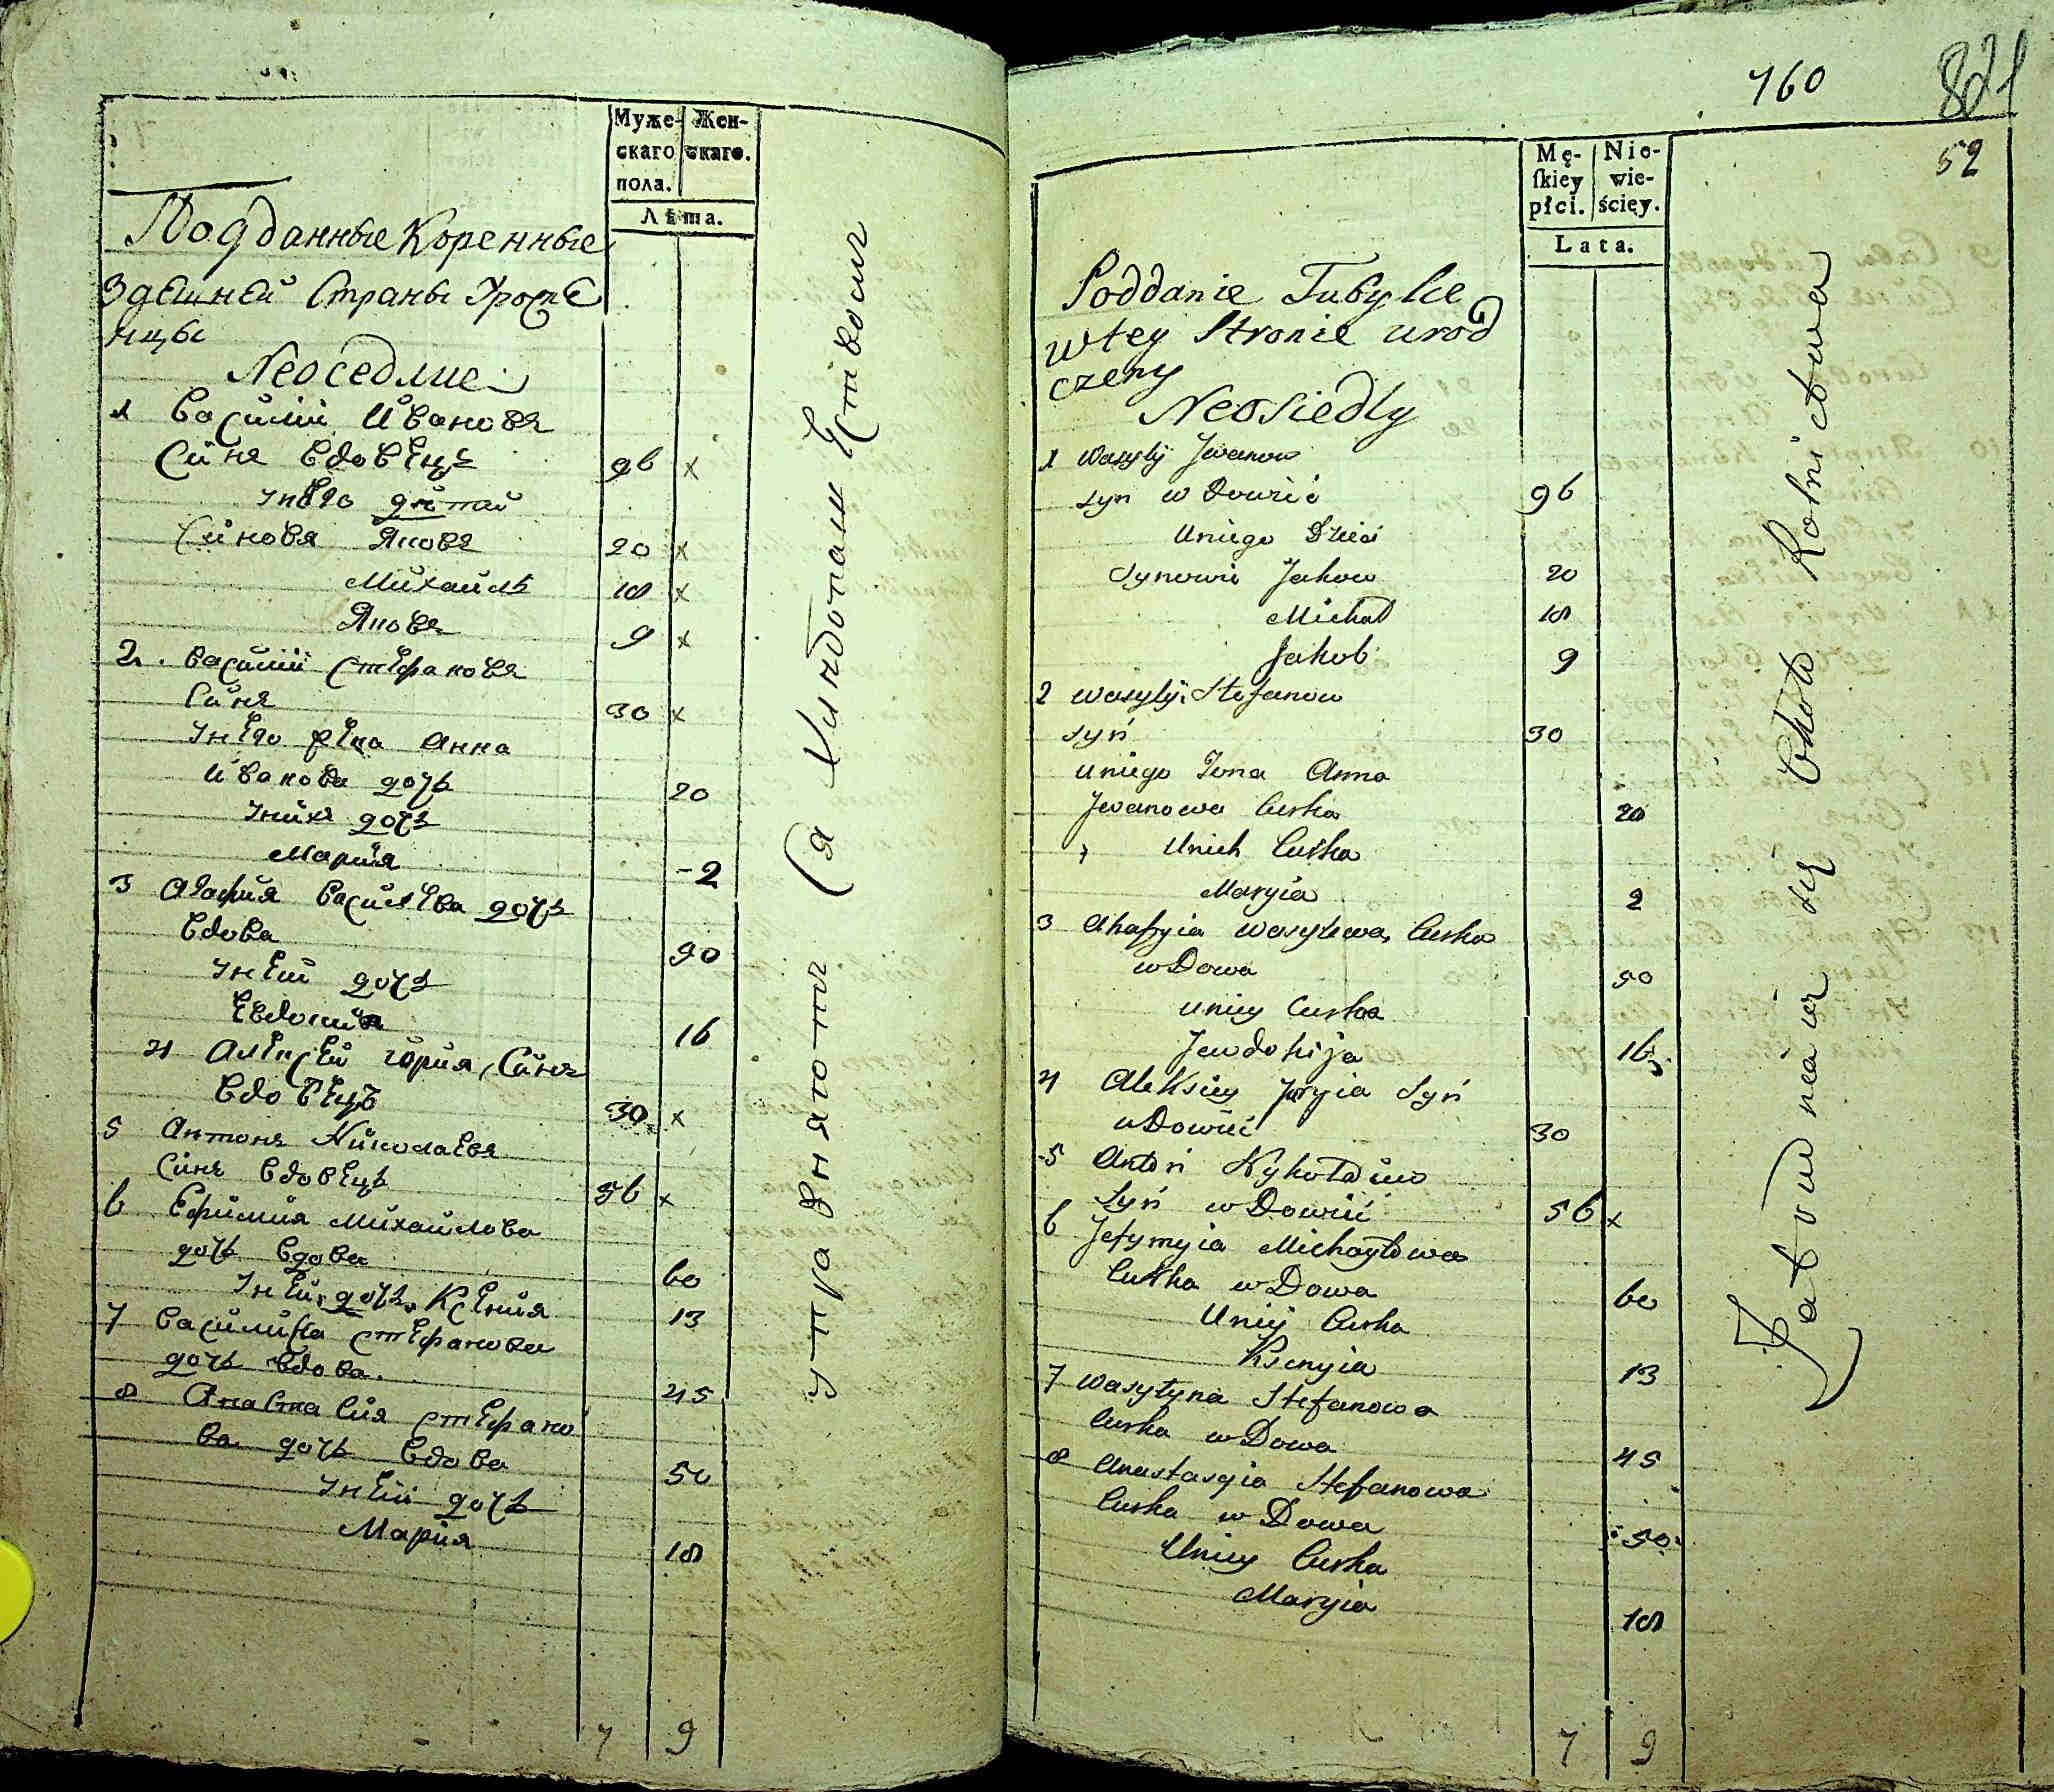 Муже-
скаго
пола.
Жен-
скаго.
Лѣта.
Подданные Коренные
Здешней Страны Уроже
нцы
Неоседлие
1 Василий Ивановъ
Синъ Вдовецъ 96 x
Унего дѣтей
Синовя Яковъ 20 x
Михаилъ 18 x
Яковъ 9 x
2. Василий Стефановъ
Синъ 30 x
Унего жена Анна
Иванова дочь 20
Унихъ дочь
Мария -2
3 Агафия Василева дочь
Вдова 90
Уней дочь
Евдокия 16
4 Алексей Юрия Синъ
Вдовецъ 30 x
5 Антонъ Николаевъ
Синъ Вдовецъ 56 x
6 Ефимия Михайлова
дочь Вдова 60
Уней дочь Ксения 13
7 Василина Стефанова
дочь Вдова. 45
8 Анастасия Стефано
ва дочь Вдова 50
Уней дочь
Мария 18
7 9
упражняютъ Ся
160
821
52
Mę-
ſkiey
płci.
Nie-
wie-
ścięy.
Lata.
Poddanie Tubylce
wtey Stronie urod
czeny
Neosiedly
1 Wasyly Jwanow
syn wDowiec 96
Uniego Dzieci
Synowie Jakow 20
Michał 18
Jakob 9
2 Wasyly Stefanow
syn 30
Uniego Żona Anna
Jwanowa Curka 20
Unich Curka
Maryia 2
3 Ahafyia Wasylewa Curka
wDowa 50
Uniey Curka
Jewdokija 16
4 Aleksiey Juryia Syn
wDowiec 30
5 Anton Nykołaiow
Syn wDowiec 56 x
6 Jefymyia Michayłowa
Curka wDowa 60
Uniey Curka
Ksenyia 13
7 Wasyłyna Stefanowa
Curka wDowa 45
8 Anastasyia Stefanowa
Curka wDowa 50
Uniey Curka
Maryia 18
7 9
Zatrudniaią się Około Rolnictwa